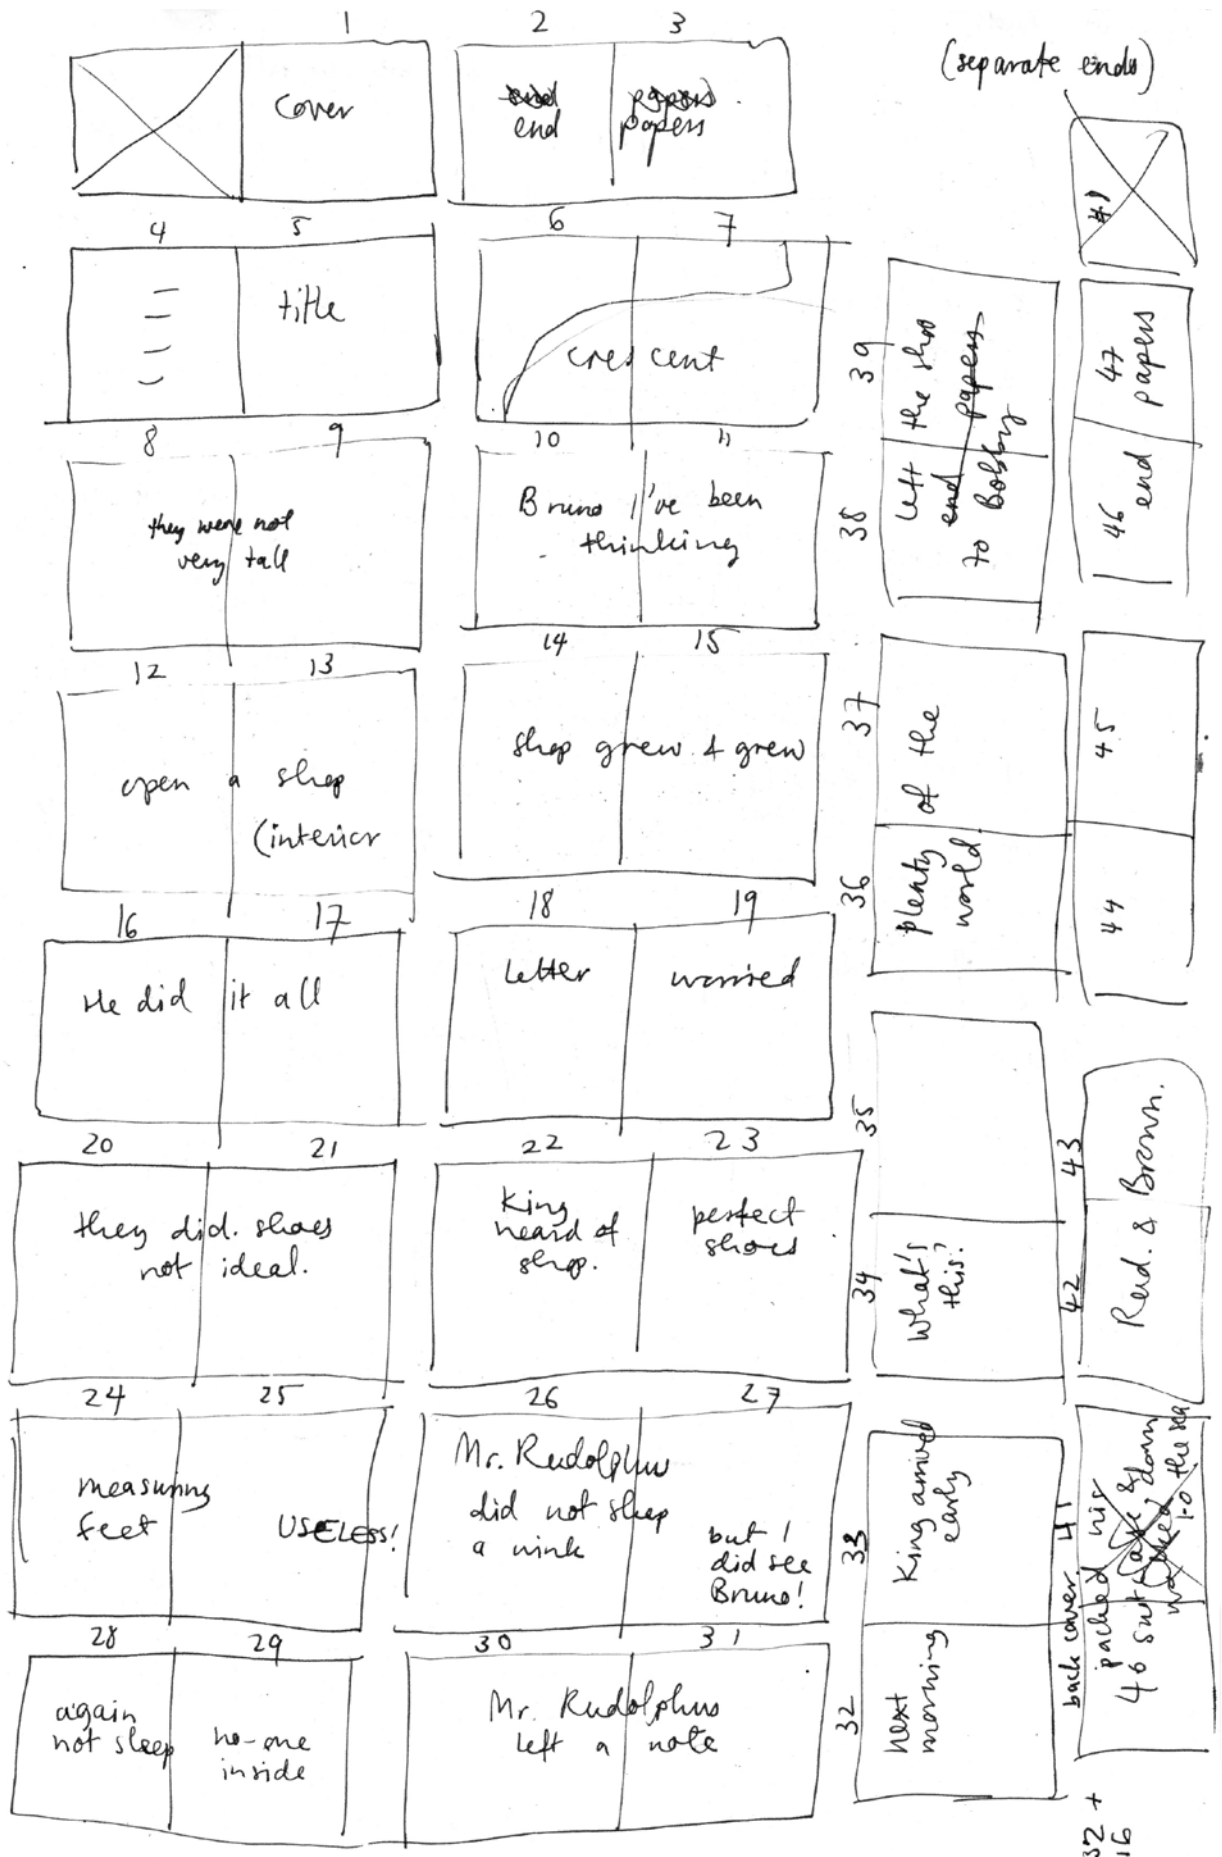 1
cover
2 3
end papers
end papers
(separate ends)
4 5
title
6 7
crescent
8 9
they were not
very tall
10 11
Bruno I've been
thinking
12 13
open a shop
(interior
14 15
shop grew & grew
16 17
He did it all
18 19
letter worried
20 21
they did. shoes
not ideal.
22 23
King
heard of
shop.
perfect
shoes
24 25
measuring
feet
USELESS!
26 27
Mr. Rudolphus
did not sleep
a wink
but I
did see
Bruno!
28 29
again
not sleep
no-one
inside
30 31
Mr. Rudolphus
left a note
32 33
next
morning
King arrived
early
34 35
What's
this?
36 37
plenty of the
world.
38 39
left the shop
end papers
to Bobby
back cover 41
packed his
40 suitcase &
walked down
to the sea
42 43
Rud. & Brown.
44 45
46 47
end papers
32 +
16